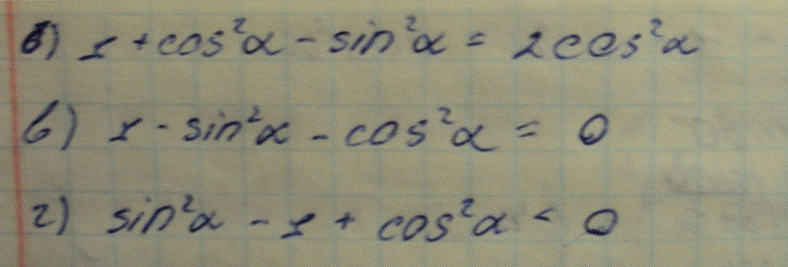 б) 1 + cos²α - sin²α = 2cos²α
в) 1 - sin²α - cos²α = 0
г) sin²α - 1 + cos²α = 0